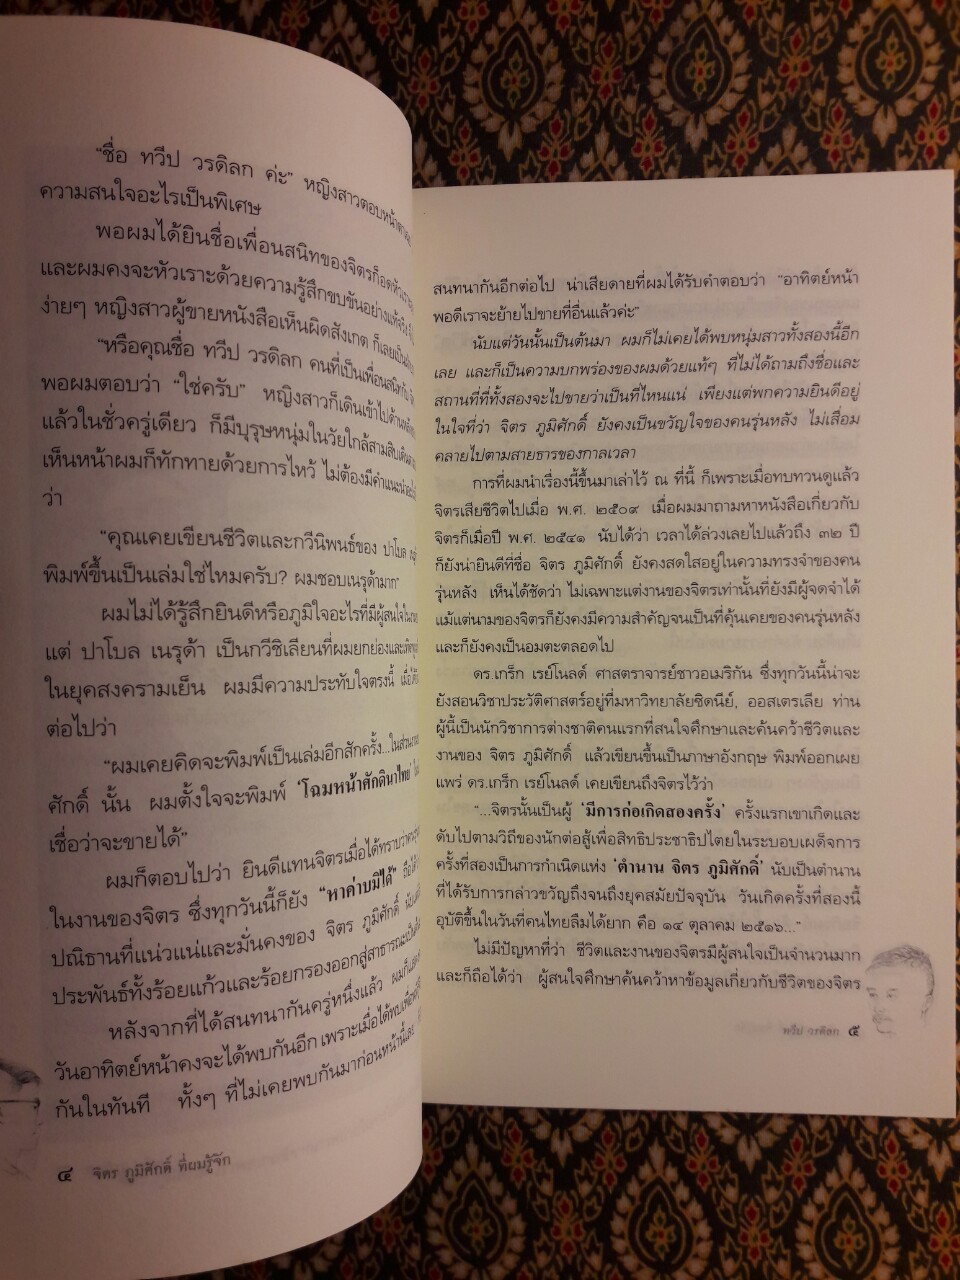 "ชื่อ ทวีป วรดิลก ค่ะ" หญิงสาวตอบหน้าตาเฉย
ความสนใจอะไรเป็นพิเศษ
พอผมได้ยินชื่อเพื่อนสนิทของจิตรก็อดหัวเราะ
และผมคงจะหัวเราะด้วยความรู้สึกขบขันอย่างแท้จริง
ง่ายๆ หญิงสาวผู้ขายหนังสือเห็นผิดสังเกต ก็เลย
"หรือคุณชื่อ ทวีป วรดิลก คนที่เป็นเพื่อนสนิทกับ
พอผมตอบว่า "ใช่ครับ" หญิงสาวก็เดินเข้าไปด้านหลัง
แล้วในชั่วครู่เดียว ก็มีบุรุษหนุ่มในวัยใกล้สามสิบเดิน
เห็นหน้าผมก็ทักทายด้วยการไหว้ ไม่ต้องมีคำแนะนำ
ว่า
"คุณเคยเขียนชีวิตและกวีนิพนธ์ของ ปาโบล
พิมพ์ขึ้นเป็นเล่มใช่ไหมครับ? ผมชอบเนรุด้ามาก"
ผมไม่ได้รู้สึกยินดีหรือภูมิใจอะไรที่มีผู้สนใจ
แต่ ปาโบล เนรุด้า เป็นกวีชิเลียนที่ผมยกย่อง
ในยุคสงครามเย็น ผมมีความประทับใจตรงนี้
ต่อไปว่า
"ผมเคยคิดจะพิมพ์เป็นเล่มอีกสักครั้ง...ในส่วน
ศักดิ์ นั้น ผมตั้งใจจะพิมพ์ 'โฉมหน้าศักดินาไทย'
เชื่อว่าจะขายได้"
ผมก็ตอบไปว่า ยินดีแทนจิตรเมื่อได้ทราบว่า
ในงานของจิตร ซึ่งทุกวันนี้ก็ยัง "หาค่าบมิได้"
ปณิธานที่แน่วแน่และมั่นคงของ จิตร ภูมิศักดิ์
ประพันธ์ทั้งร้อยแก้วและร้อยกรองออกสู่สาธารณะ
หลังจากที่ได้สนทนากันครู่หนึ่งแล้ว
วันอาทิตย์หน้าคงจะได้พบกันอีก เพราะเมื่อได้พบ
กันในทันที ทั้งๆ ที่ไม่เคยพบกันมาก่อนหน้านี้เลย
๔ จิตร ภูมิศักดิ์ ที่ผมรู้จัก
สนทนากันอีกต่อไป น่าเสียดายที่ผมได้รับคำตอบว่า "อาทิตย์หน้า
พอดีเราจะย้ายไปขายที่อื่นแล้วค่ะ"
นับแต่วันนั้นเป็นต้นมา ผมก็ไม่เคยได้พบหนุ่มสาวทั้งสองนี้อีก
เลย และก็เป็นความบกพร่องของผมด้วยแท้ๆ ที่ไม่ได้ถามถึงชื่อและ
สถานที่ที่ทั้งสองจะไปขายว่าเป็นที่ไหนแน่ เพียงแต่พกความยินดีอยู่
ในใจที่ว่า จิตร ภูมิศักดิ์ ยังคงเป็นขวัญใจของคนรุ่นหลัง ไม่เสื่อม
คลายไปตามสายธารของกาลเวลา
การที่ผมนำเรื่องนี้ขึ้นมาเล่าไว้ ณ ที่นี้ ก็เพราะเมื่อทบทวนดูแล้ว
จิตรเสียชีวิตไปเมื่อ พ.ศ. ๒๕๐๙ เมื่อผมมาถามหาหนังสือเกี่ยวกับ
จิตรก็เมื่อปี พ.ศ. ๒๕๔๑ นับได้ว่า เวลาได้ล่วงเลยไปแล้วถึง ๓๒ ปี
ก็ยังน่ายินดีที่ชื่อ จิตร ภูมิศักดิ์ ยังคงสดใสอยู่ในความทรงจำของคน
รุ่นหลัง เห็นได้ชัดว่า ไม่เฉพาะแต่งานของจิตรเท่านั้นที่ยังมีผู้จดจำได้
แม้แต่นามของจิตรก็ยังคงมีความสำคัญจนเป็นที่คุ้นเคยของคนรุ่นหลัง
และก็ยังคงเป็นอมตะตลอดไป
ดร.เกร็ก เรย์โนลด์ ศาสตราจารย์ชาวอเมริกัน ซึ่งทุกวันนี้น่าจะ
ยังสอนวิชาประวัติศาสตร์อยู่ที่มหาวิทยาลัยซิดนีย์, ออสเตรเลีย ท่าน
ผู้นี้เป็นนักวิชาการต่างชาติคนแรกที่สนใจศึกษาและค้นคว้าชีวิตและ
งานของ จิตร ภูมิศักดิ์ แล้วเขียนขึ้นเป็นภาษาอังกฤษ พิมพ์ออกเผย
แพร่ ดร.เกร็ก เรย์โนลด์ เคยเขียนถึงจิตรไว้ว่า
"...จิตรนั้นเป็นผู้ 'มีการก่อเกิดสองครั้ง' ครั้งแรกเขาเกิดและ
ดับไปตามวิถีของนักต่อสู้เพื่อสิทธิประชาธิปไตยในระบอบเผด็จการ
ครั้งที่สองเป็นการกำเนิดแห่ง 'ตำนาน จิตร ภูมิศักดิ์' นับเป็นตำนาน
ที่ได้รับการกล่าวขวัญถึงจนถึงยุคสมัยปัจจุบัน วันเกิดครั้งที่สองนี้
อุบัติขึ้นในวันที่คนไทยลืมได้ยาก คือ ๑๔ ตุลาคม ๒๕๑๖..."
ไม่มีปัญหาที่ว่า ชีวิตและงานของจิตรมีผู้สนใจเป็นจำนวนมาก
และก็ถือได้ว่า ผู้สนใจศึกษาค้นคว้าหาข้อมูลเกี่ยวกับชีวิตของจิตร
ทวีป วรดิลก ๕